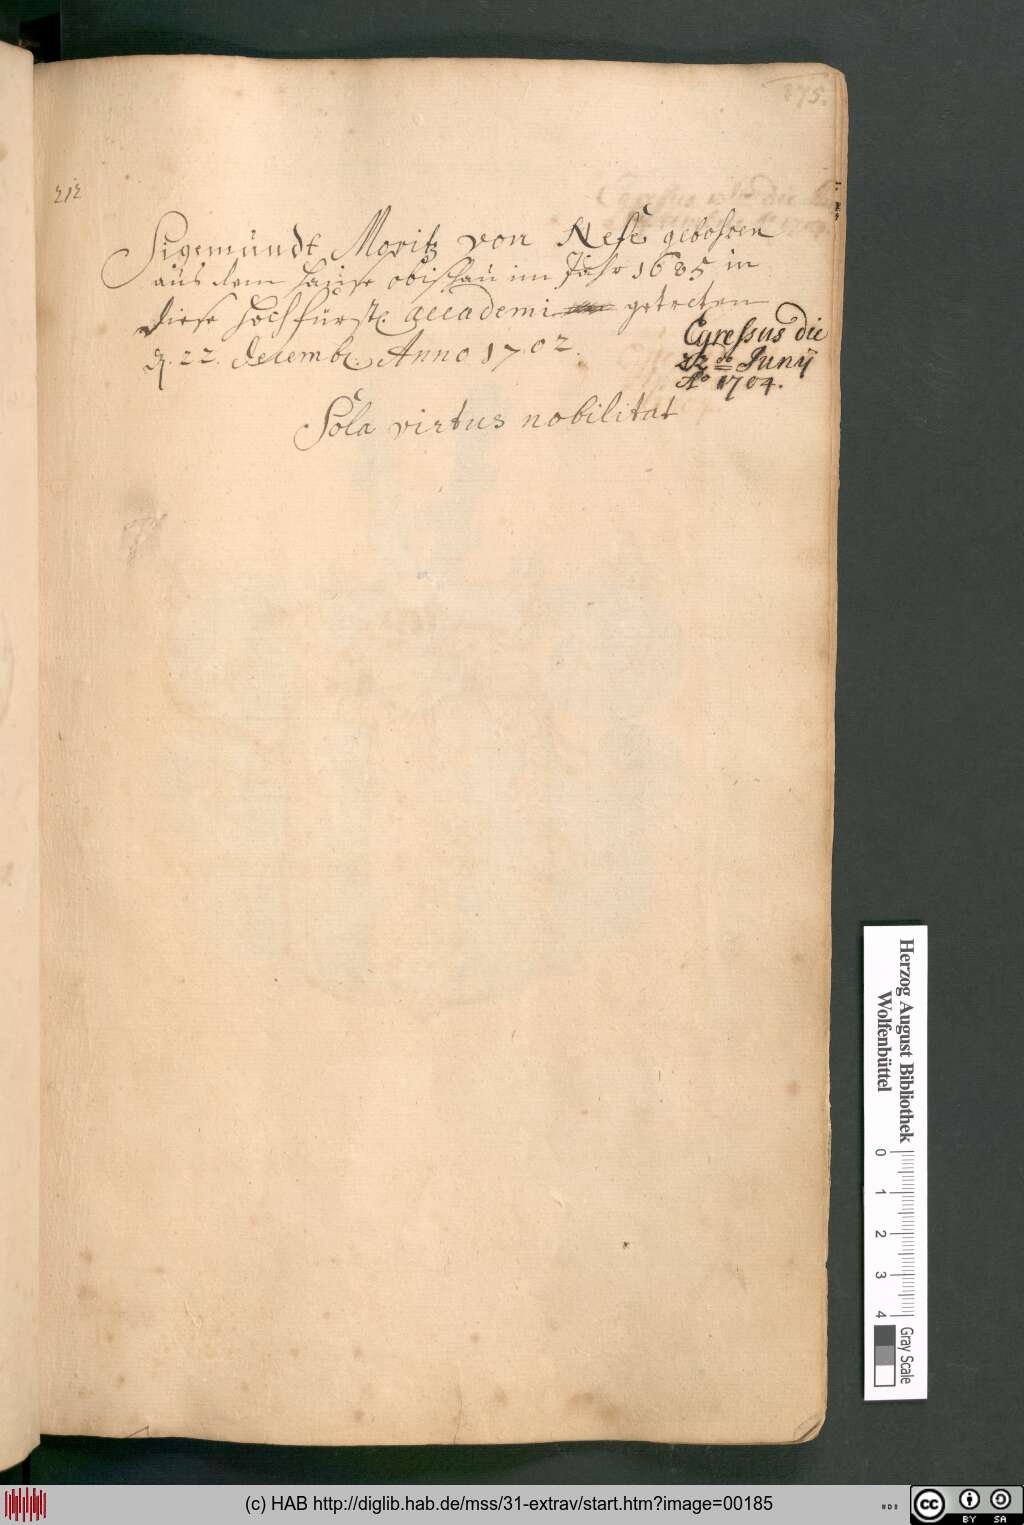 175.
212
Sigemundt Moritz von Nefe gebohren
aus dem Hause obischau im Jahr 1685 in
diese Hochfürstl. accademi getreten
d. 22. decembr. Anno 1702.
Egressus die
22do Junÿ
Ao 1704.
Sola virtus nobilitat
Herzog August Bibliothek
Wolfenbüttel
0 1 2 3 4
Gray Scale
(c) HAB http://diglib.hab.de/mss/31-extrav/start.htm?image=00185
cc BY SA